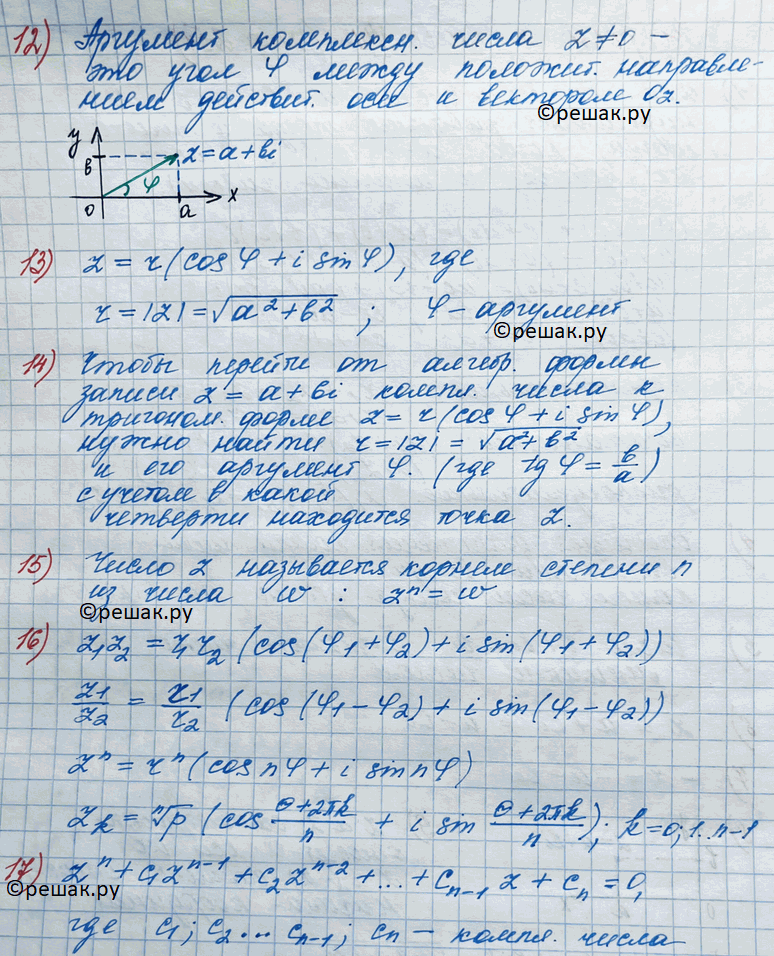 12) Аргумент комплексн. числа z ≠ 0 –
это угол φ между положит. направле-
нием действит. оси и вектором Oz.
©решак.ру
y
в
z = a + вi
φ
0
a
x
13) z = r (cos φ + i sin φ), где
r = |z| = √(a² + в²) ; φ – аргумент
©решак.ру
14) Чтобы перейти от алгебр. формы
записи z = a + вi компл. числа к
тригоном. форме z = r (cos φ + i sin φ),
нужно найти r = |z| = √(a² + в²)
и его аргумент φ. (где tg φ = в/a)
с учетом в какой
четверти находится точка z.
15) Число z называется корнем степени n
из числа w : zⁿ = w
©решак.ру
16) z₁z₂ = r₁r₂ (cos(φ₁ + φ₂) + i sin(φ₁ + φ₂))
z₁/z₂ = r₁/r₂ (cos(φ₁ – φ₂) + i sin(φ₁ – φ₂))
zⁿ = rⁿ (cos nφ + i sin nφ)
zₖ = ⁿ√p (cos (θ + 2πk)/n + i sin (θ + 2πk)/n); k = 0; 1..n-1
17) zⁿ + c₁zⁿ⁻¹ + c₂zⁿ⁻² + ... + cₙ₋₁ z + cₙ = 0,
©решак.ру
где c₁; c₂ ... cₙ₋₁; cₙ – компл. числа